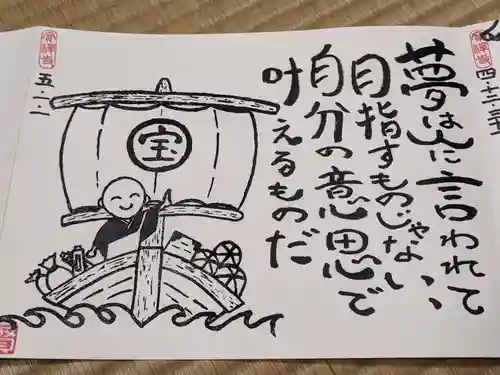 四・十二・
夢は人に言われて
目指すものじゃない、、
自分の意思で
叶えるものだ
宝
五・一